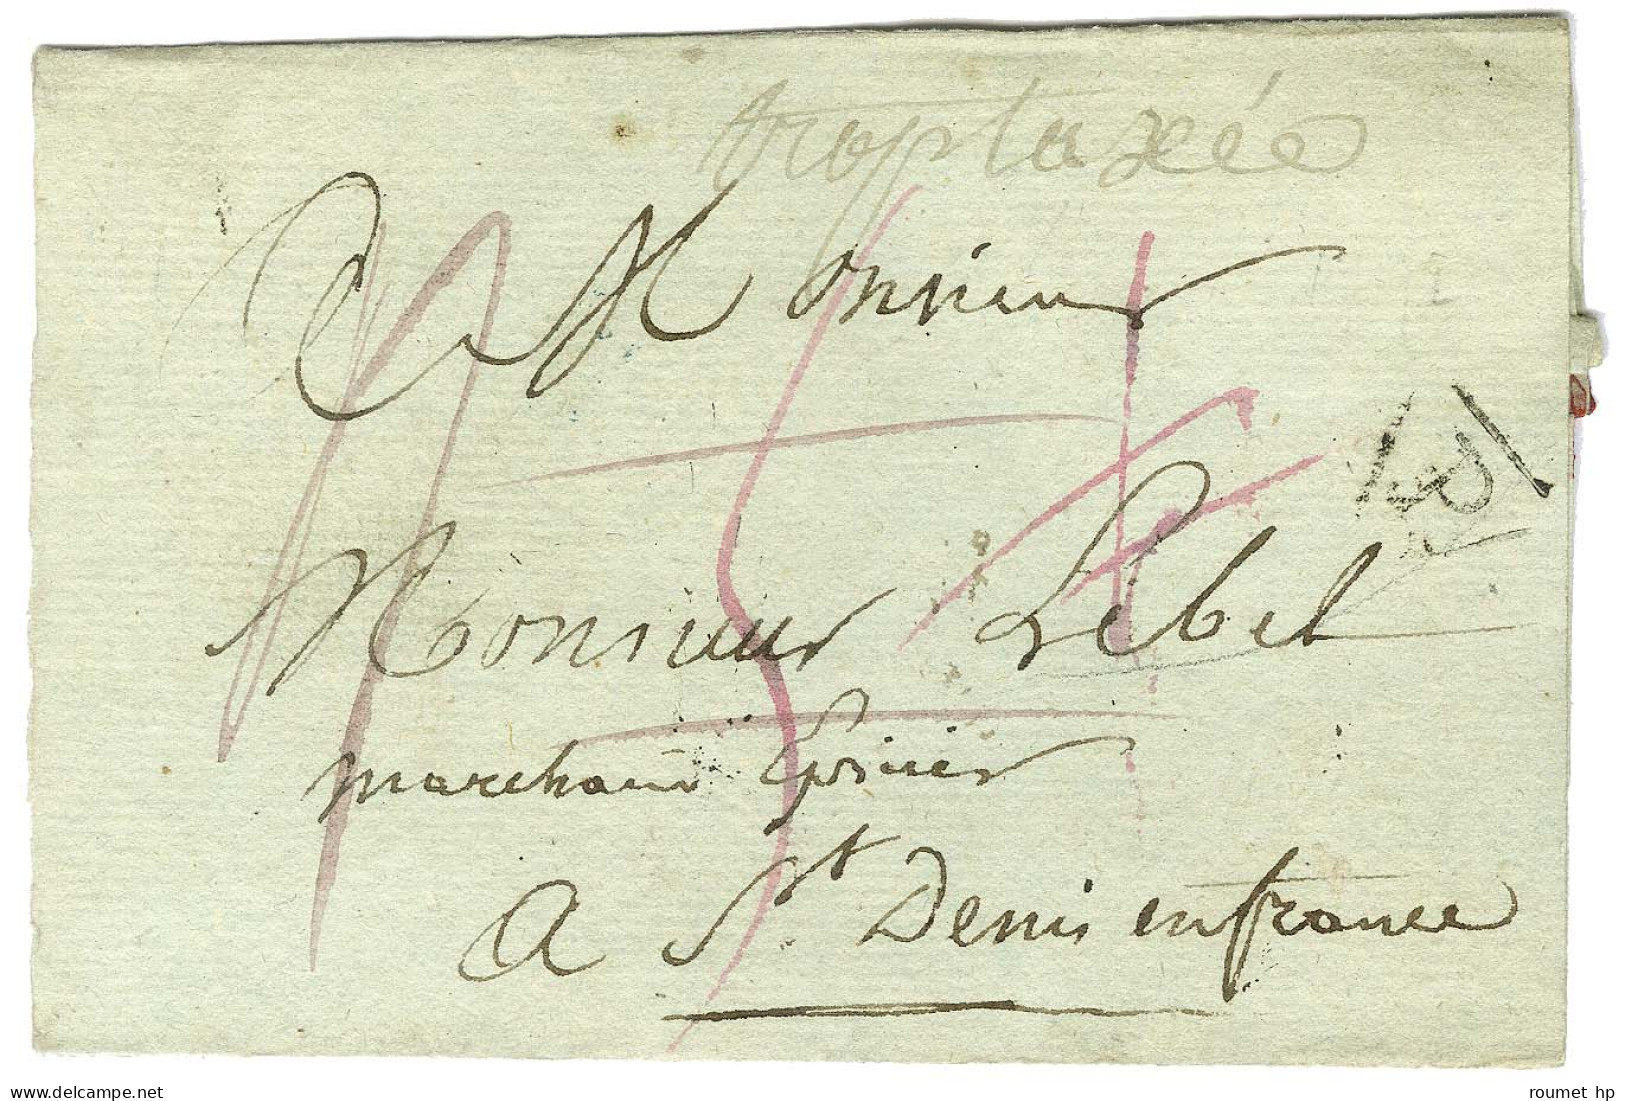 trop taxée
A Monsieur
Monsieur Lebel
marchand Epicier
A St Denis en france
P
roumet hp